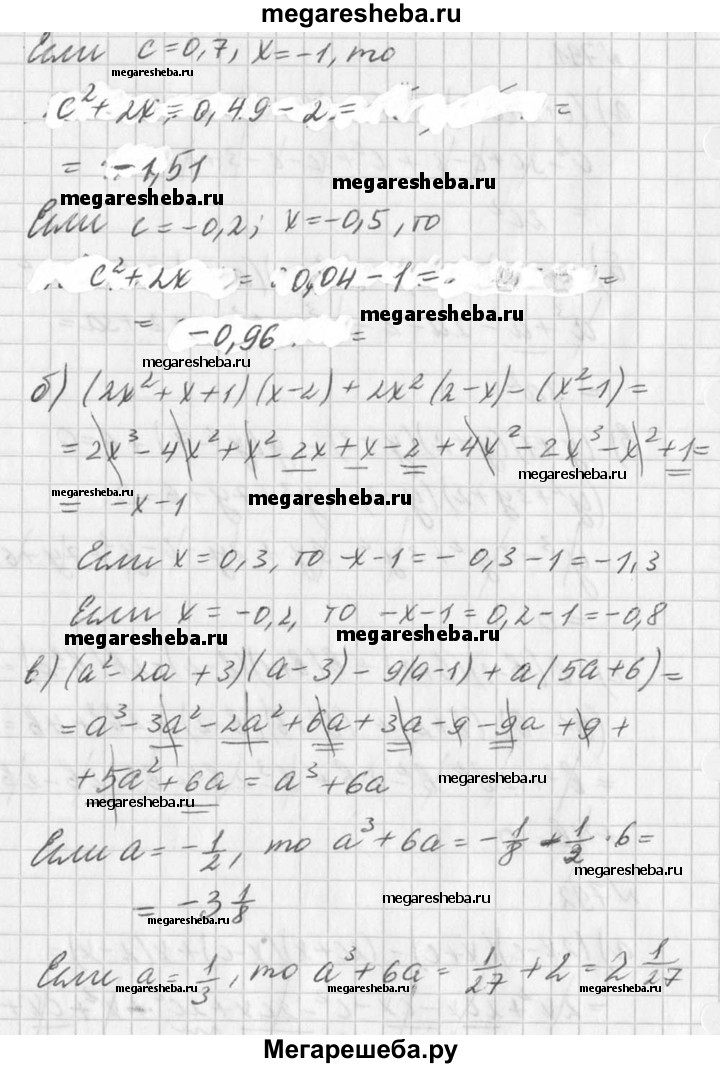 megaresheba.ru
Если c=0,7, x=-1, то
megaresheba.ru
c²+2x = 0,49-2 = =
= -1,51
megaresheba.ru megaresheba.ru
Если c=-0,2; x=-0,5, то
c²+2x = 0,04-1 = =
megaresheba.ru
= -0,96 =
megaresheba.ru
б) (2x²+x+1)(x-2)+2x²(2-x)-(x²-1)=
=2x³-4x²+x²-2x+x-2+4x²-2x³-x²+1=
megaresheba.ru
megaresheba.ru megaresheba.ru
= -x-1
Если x=0,3, то -x-1=-0,3-1=-1,3
Если x=-0,2, то -x-1=0,2-1=-0,8
megaresheba.ru megaresheba.ru
в) (a²-2a+3)(a-3)-9(a-1)+a(5a+6)=
=a³-3a²-2a²+6a+3a-9-9a+9+
+5a²+6a=a³+6a
megaresheba.ru megaresheba.ru
Если a=-1/2, то a³+6a=-1/8-1/2·6=
= -3 1/8
megaresheba.ru megaresheba.ru
Если a=1/3, то a³+6a=1/27+2=2 1/27
megaresheba.ru megaresheba.ru megaresheba.ru
Мегарешеба.ру